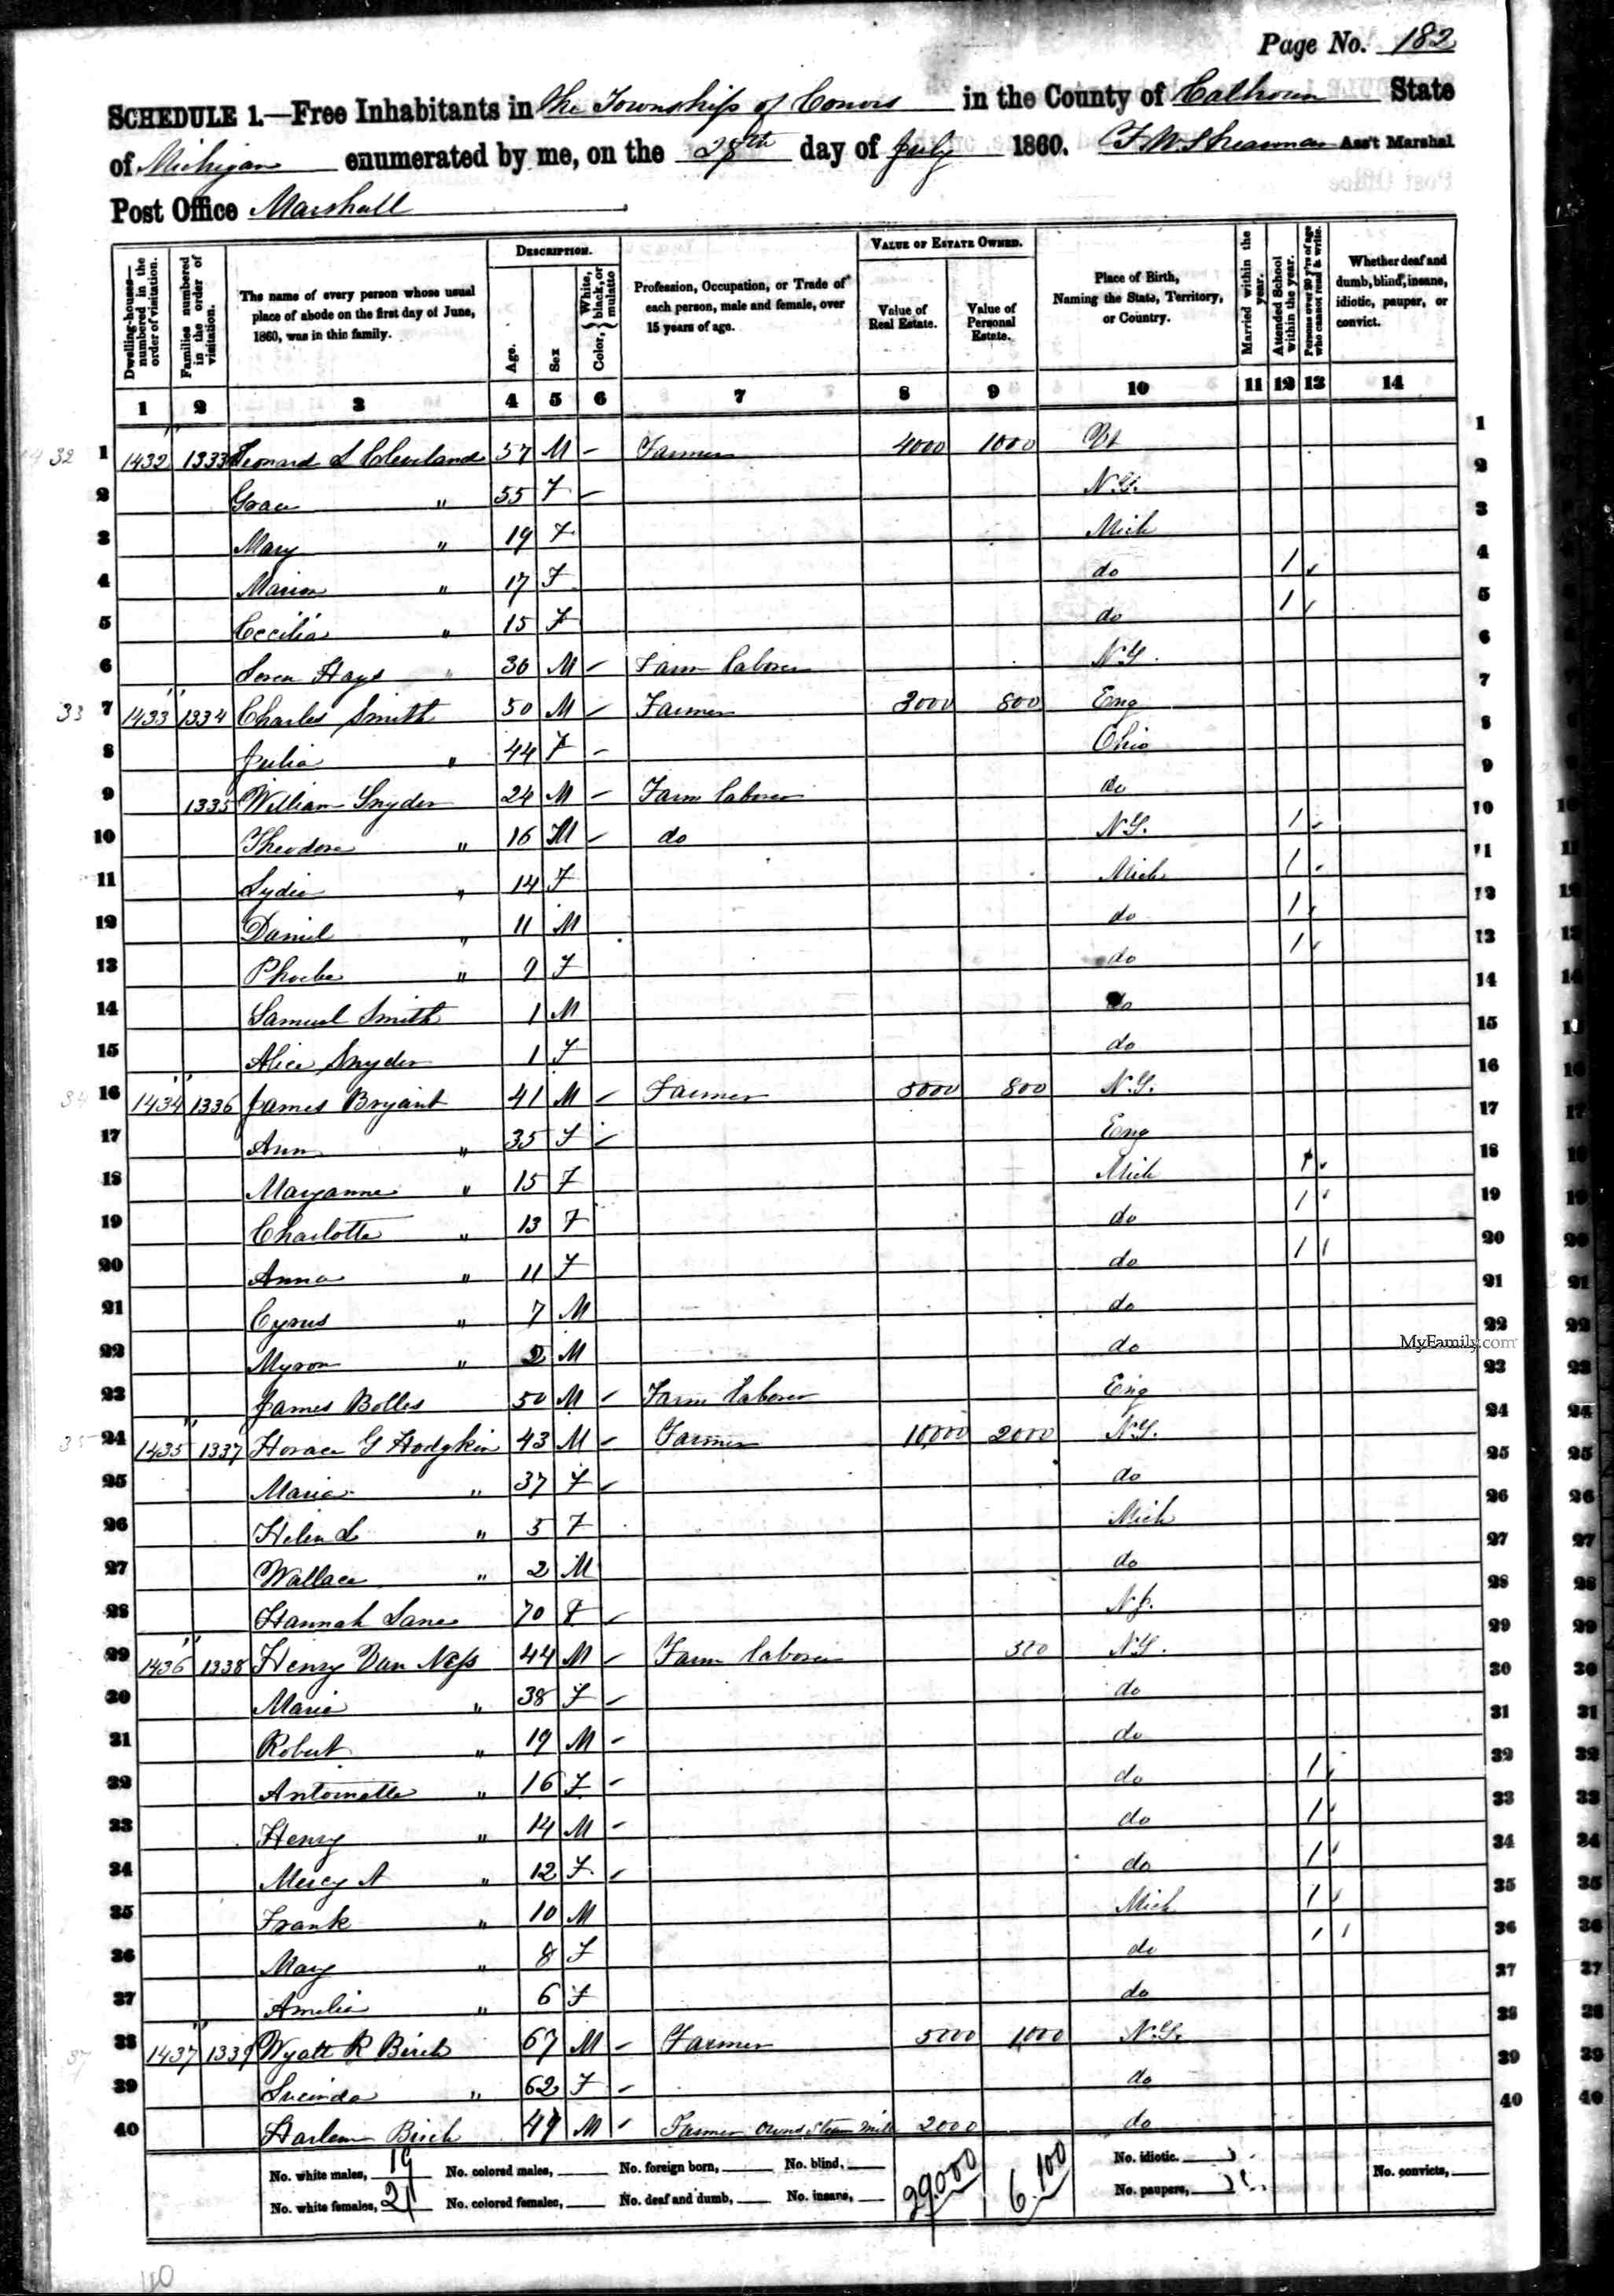 Page No. 182
SCHEDULE 1.—Free Inhabitants in The Township of Convis in the County of Calhoun State
of Michigan enumerated by me, on the 28th day of July 1860. Ass't Marshal
Post Office Marshall
Dwelling-houses—numbered in the order of visitation.
Families numbered in the order of visitation.
The name of every person whose usual place of abode on the first day of June, 1860, was in this family.
DESCRIPTION.
Age.
Sex
Color, White, black, or mulatto
Profession, Occupation, or Trade of each person, male and female, over 15 years of age.
VALUE OF ESTATE OWNED.
Value of Real Estate.
Value of Personal Estate.
Place of Birth, Naming the State, Territory, or Country.
Married within the year.
Attended School within the year.
Persons over 20 y'rs of age who cannot read & write.
Whether deaf and dumb, blind, insane, idiotic, pauper, or convict.
1 2 3 4 5 6 7 8 9 10 11 12 13 14
1 1432 1333 Leonard L Cleveland 57 M – Farmer 4000 1000 Vt 1
2 Grace " 55 F – N.Y. 2
3 Mary " 19 F Mich 3
4 Marion " 17 F do 1 4
5 Cecilia " 15 F do 1 5
6 Loren Hays " 30 M – Farm laborer N.Y. 6
33 7 1433 1334 Charles Smith 50 M – Farmer 3000 800 Eng 7
8 Julia " 44 F – Ohio 8
9 1335 William Snyder 24 M – Farm laborer do 9
10 Theodore " 16 M – do N.Y. 1 10
11 Lydia " 14 F Mich 1 11
12 Daniel " 11 M do 1 12
13 Phoebe " 9 F do 1 13
14 Samuel Smith 1 M do 14
15 Alice Snyder 1 F do 15
34 16 1434 1336 James Bryant 41 M – Farmer 5000 800 N.Y. 16
17 Ann " 35 F – Eng 17
18 Maryanne " 15 F Mich 1 18
19 Charlotte " 13 F do 1 19
20 Anna " 11 F do 1 20
21 Cyrus " 7 M do 21
22 Myron " 2 M do 22
MyFamily.com
23 James Bolles 50 M – Farm laborer Eng 23
35 24 1435 1337 Horace G Hodgkin 43 M – Farmer 10,000 2000 N.Y. 24
25 Maria " 37 F – do 25
26 Helen L " 5 F Mich 26
27 Wallace " 2 M do 27
28 Hannah Lane 70 F – N.J. 28
29 1436 1338 Henry Van Ness 44 M – Farm laborer N.Y. 29
30 Maria " 38 F – do 30
31 Robert " 19 M – do 31
32 Antoinette " 16 F – do 1 32
33 Henry " 14 M – do 1 33
34 Mercy A " 12 F – do 1 34
35 Frank " 10 M Mich 1 35
36 Mary " 8 F do 1 36
37 Amelia " 6 F do 37
37 38 1437 1339 Wyatt R Birch 67 M – Farmer 5000 1,000 N.Y. 38
39 Lucinda " 62 F – do 39
40 Harlem Birch M – Farmer owns Steam Mill 2000 do 40
No. white males, 19 No. colored males, No. foreign born, No. blind, 29,000 6,100 No. idiotic. No. convicts,
No. white females, 21 No. colored females, No. deaf and dumb, No. insane, No. paupers,